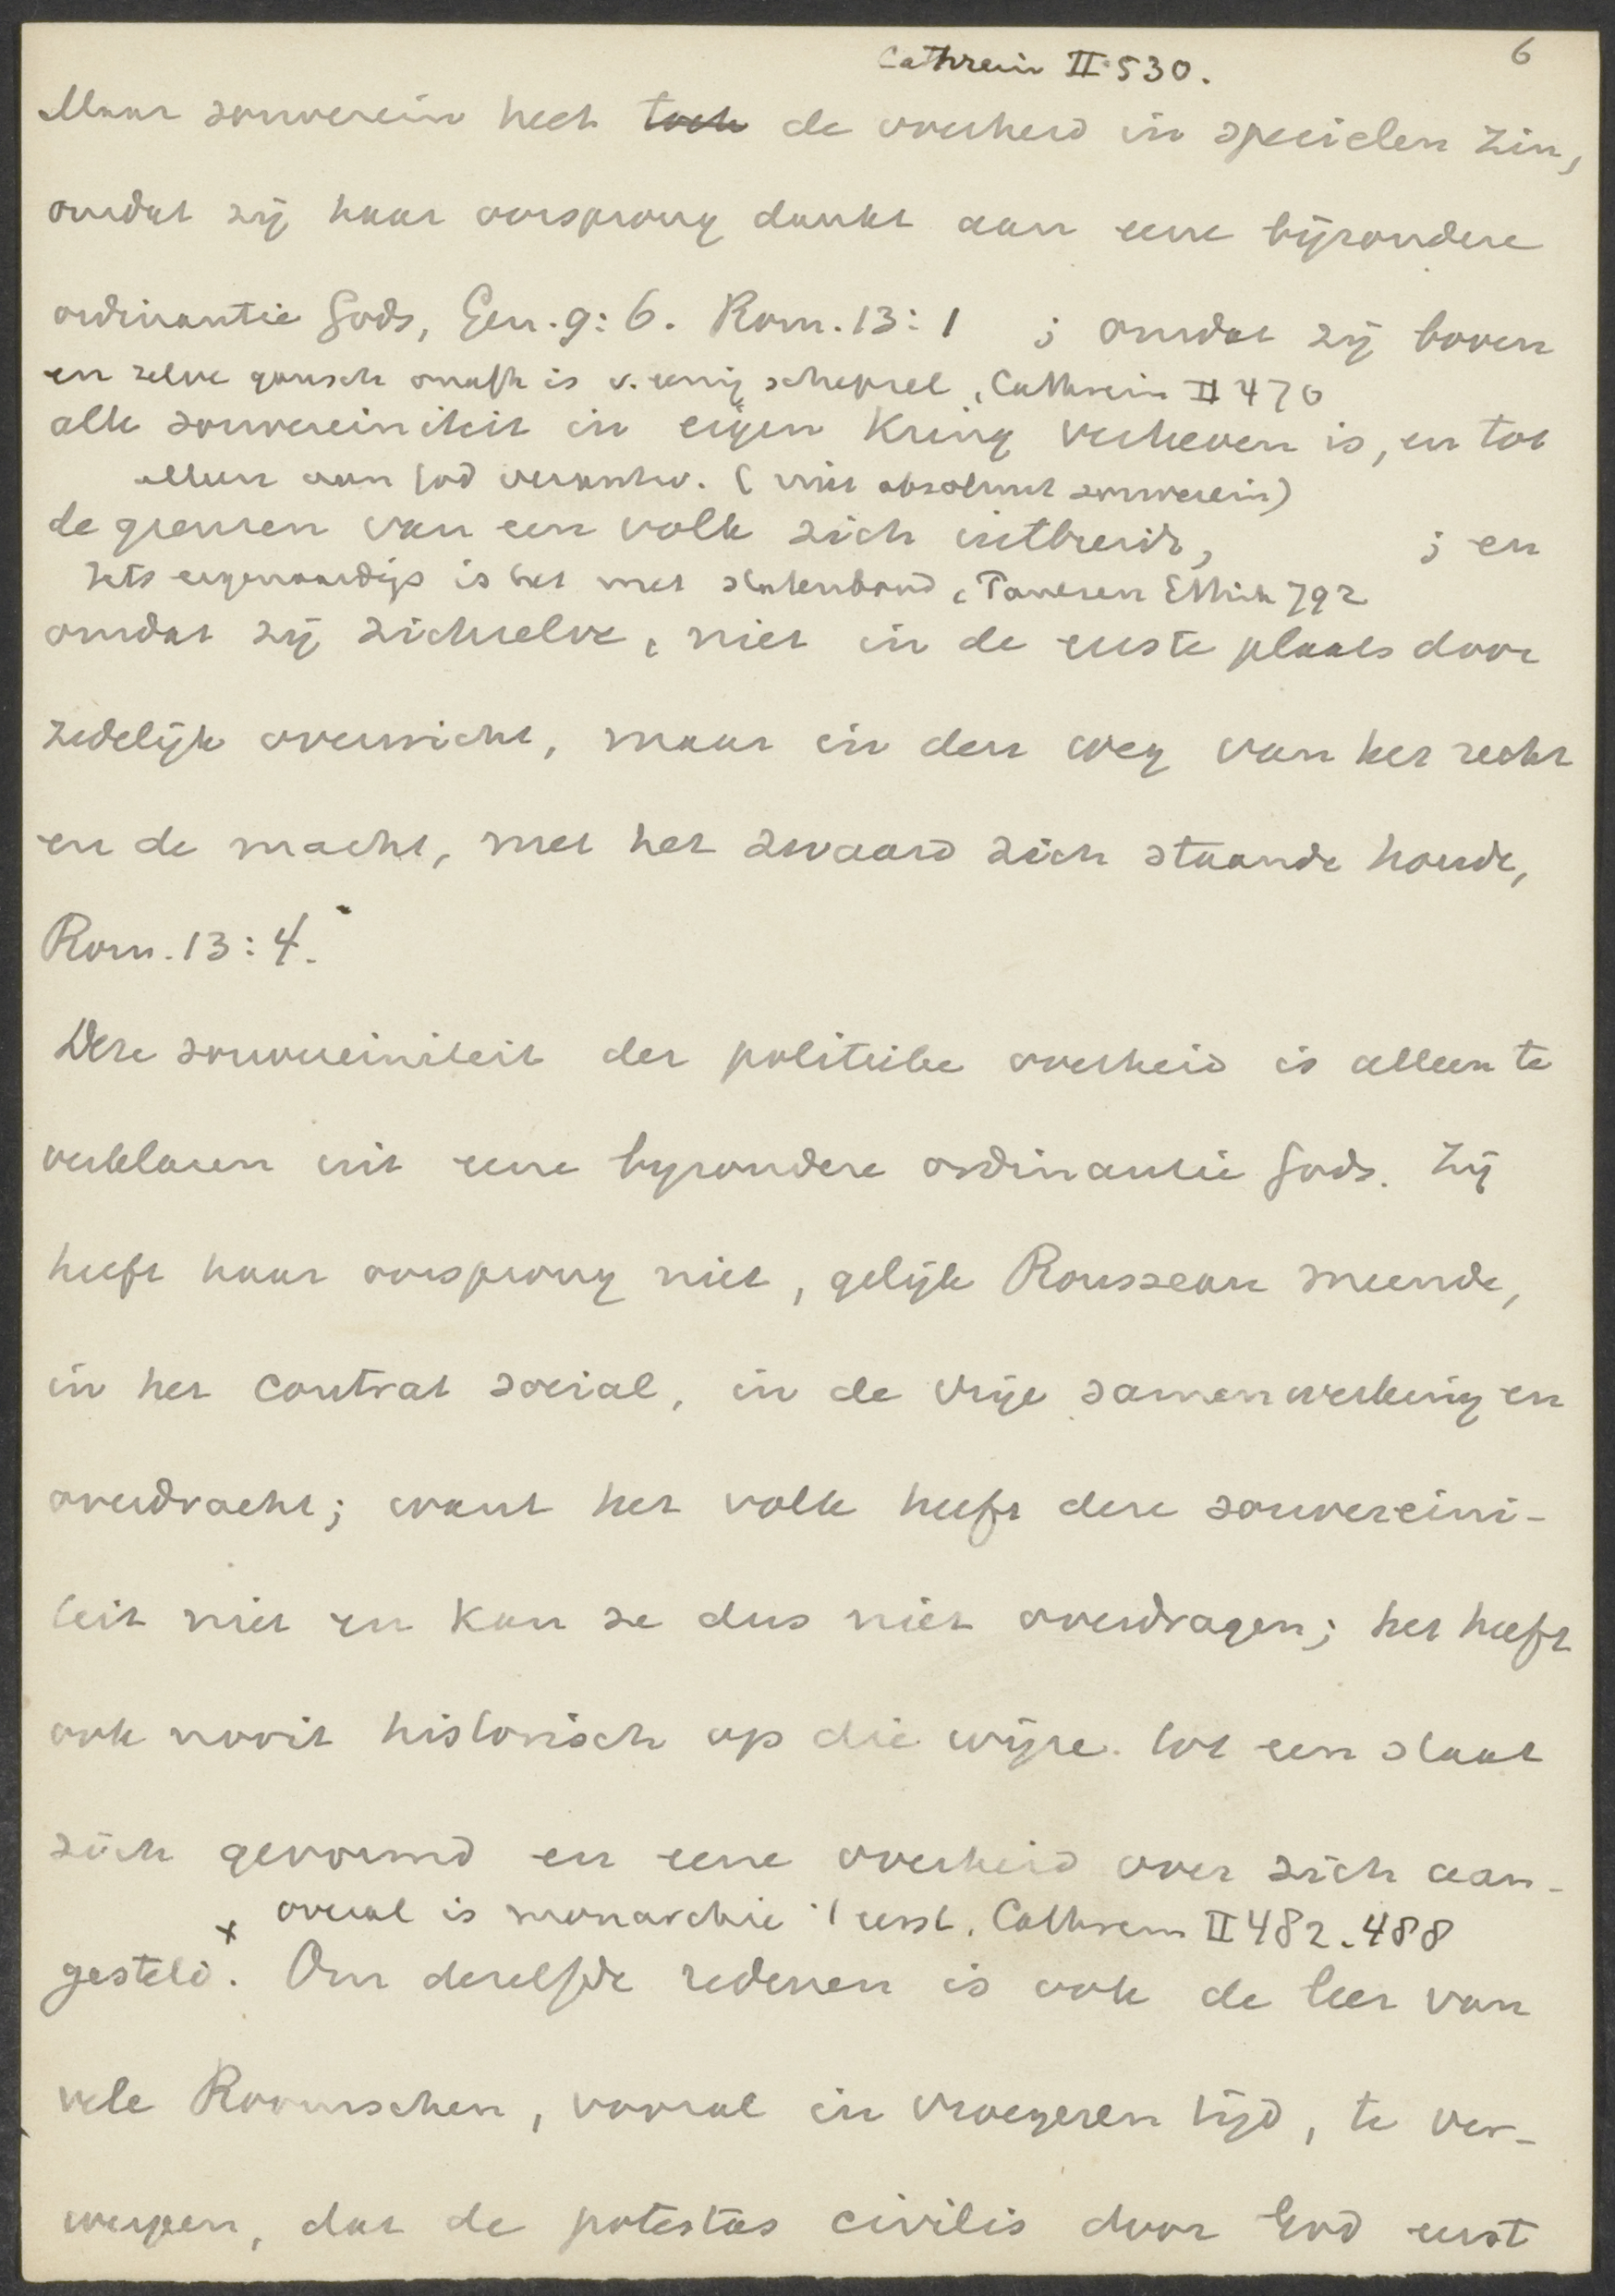 Cathrein II 530.
6
Maar souverein heet toch de overheid in specielen zin,
omdat zij haar oorsprong dankt aan eene bijzondere
ordinantie Gods, Gen. 9:6. Rom. 13:1 ; omdat zij boven
en zelve gansch onafh is v. eenig schepsel, Cathrein II 470
alle souvereiniteit in eigen Kring verheven is, en tot
alleen aan God verantw. (niet absoluut souverein)
de grenzen van een volk zich uitbreidt, ; en
Iets eigenaardigs is het met statenbond, Paulsen Ethik 792
omdat zij zichzelve, niet in de eerste plaats door
zedelijk overwicht, maar in den weg van het recht
en de macht, met het zwaard zich staande houdt,
Rom. 13:4.
Deze souvereiniteit der politieke overheid is alleen te
verklaren uit eene byzondere ordinantie Gods. Zij
heeft haar oorsprong niet, gelijk Rousseau meende,
in het contrat social, in de vrije samenwerking en
overdracht; want het volk heeft deze souvereini-
teit niet en kan ze dus niet overdragen; het heeft
ook nooit historisch op die wijze tot een staat
zich gevormd en eene overheid over zich aan-
x overal is monarchie 't eerst. Cathrein II 482. 488
gesteld. Om dezelfde redenen is ook de leer van
vele Roomschen, vooral in vroegeren tijd, te ver-
werpen, dat de potestas civilis door God eerst